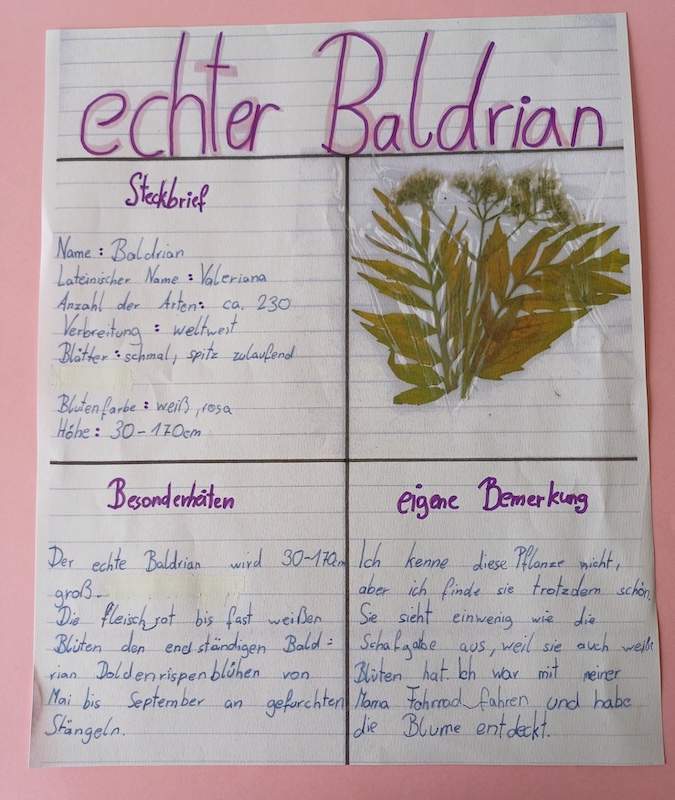 echter Baldrian
Steckbrief
Name: Baldrian
Lateinischer Name: Valeriana
Anzahl der Arten: ca. 230
Verbreitung: weltweit
Blätter: schmal, spitz zulaufend
Blütenfarbe: weiß, rosa
Höhe: 30-170cm
Besonderheiten
Der echte Baldrian wird 30-170cm
groß.
Die fleischrot bis fast weißen
Blüten den endständigen Bald=
rian Doldenrispen blühen von
Mai bis September an gefurchten
Stängeln.
eigene Bemerkung
Ich kenne diese Pflanze nicht,
aber ich finde sie trotzdem schön.
Sie sieht einwenig wie die
Schafgabe aus, weil sie auch weiße
Blüten hat. Ich war mit meiner
Mama Fahrrad fahren und habe
die Blume entdeckt.